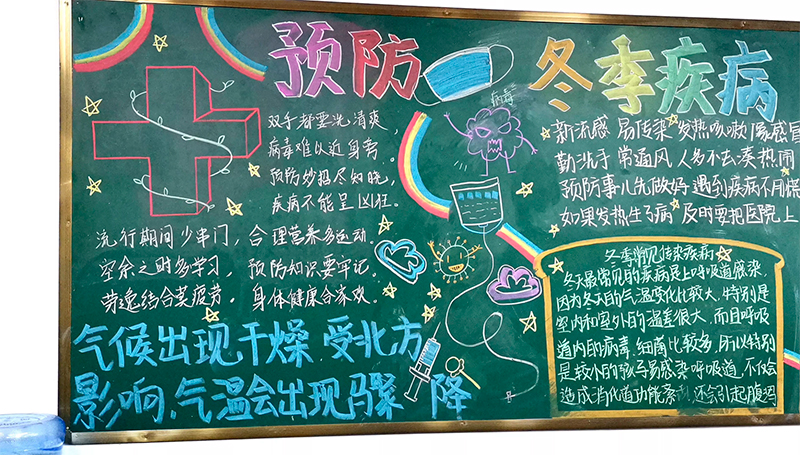 预防 冬季疾病
病毒
双手都要洗清爽，
病毒难以近身旁。
预防妙招尽知晓，
疾病不能呈凶狂。
流行期间少串门，合理营养多运动。
空余之时多学习，预防知识要牢记。
劳逸结合莫疲劳。身体健康合家欢。
气候出现干燥 受北方
影响、气温会出现骤 降
新流感 易传染 发热咳嗽像感冒
勤洗手 常通风 人多不去凑热闹
预防事儿先做好 遇到疾病不用慌
如果发热生了病 及时要把医院上
冬季常见传染疾病
冬天最常见的疾病是上呼吸道感染，
因为冬天的气温变化比较大，特别是
室内和室外的温差很大，而且呼吸
道内的病毒、细菌比较多，所以特别
是较小的孩子易感染呼吸道，不仅会
造成消化道功能紊乱，还会引起腹泻